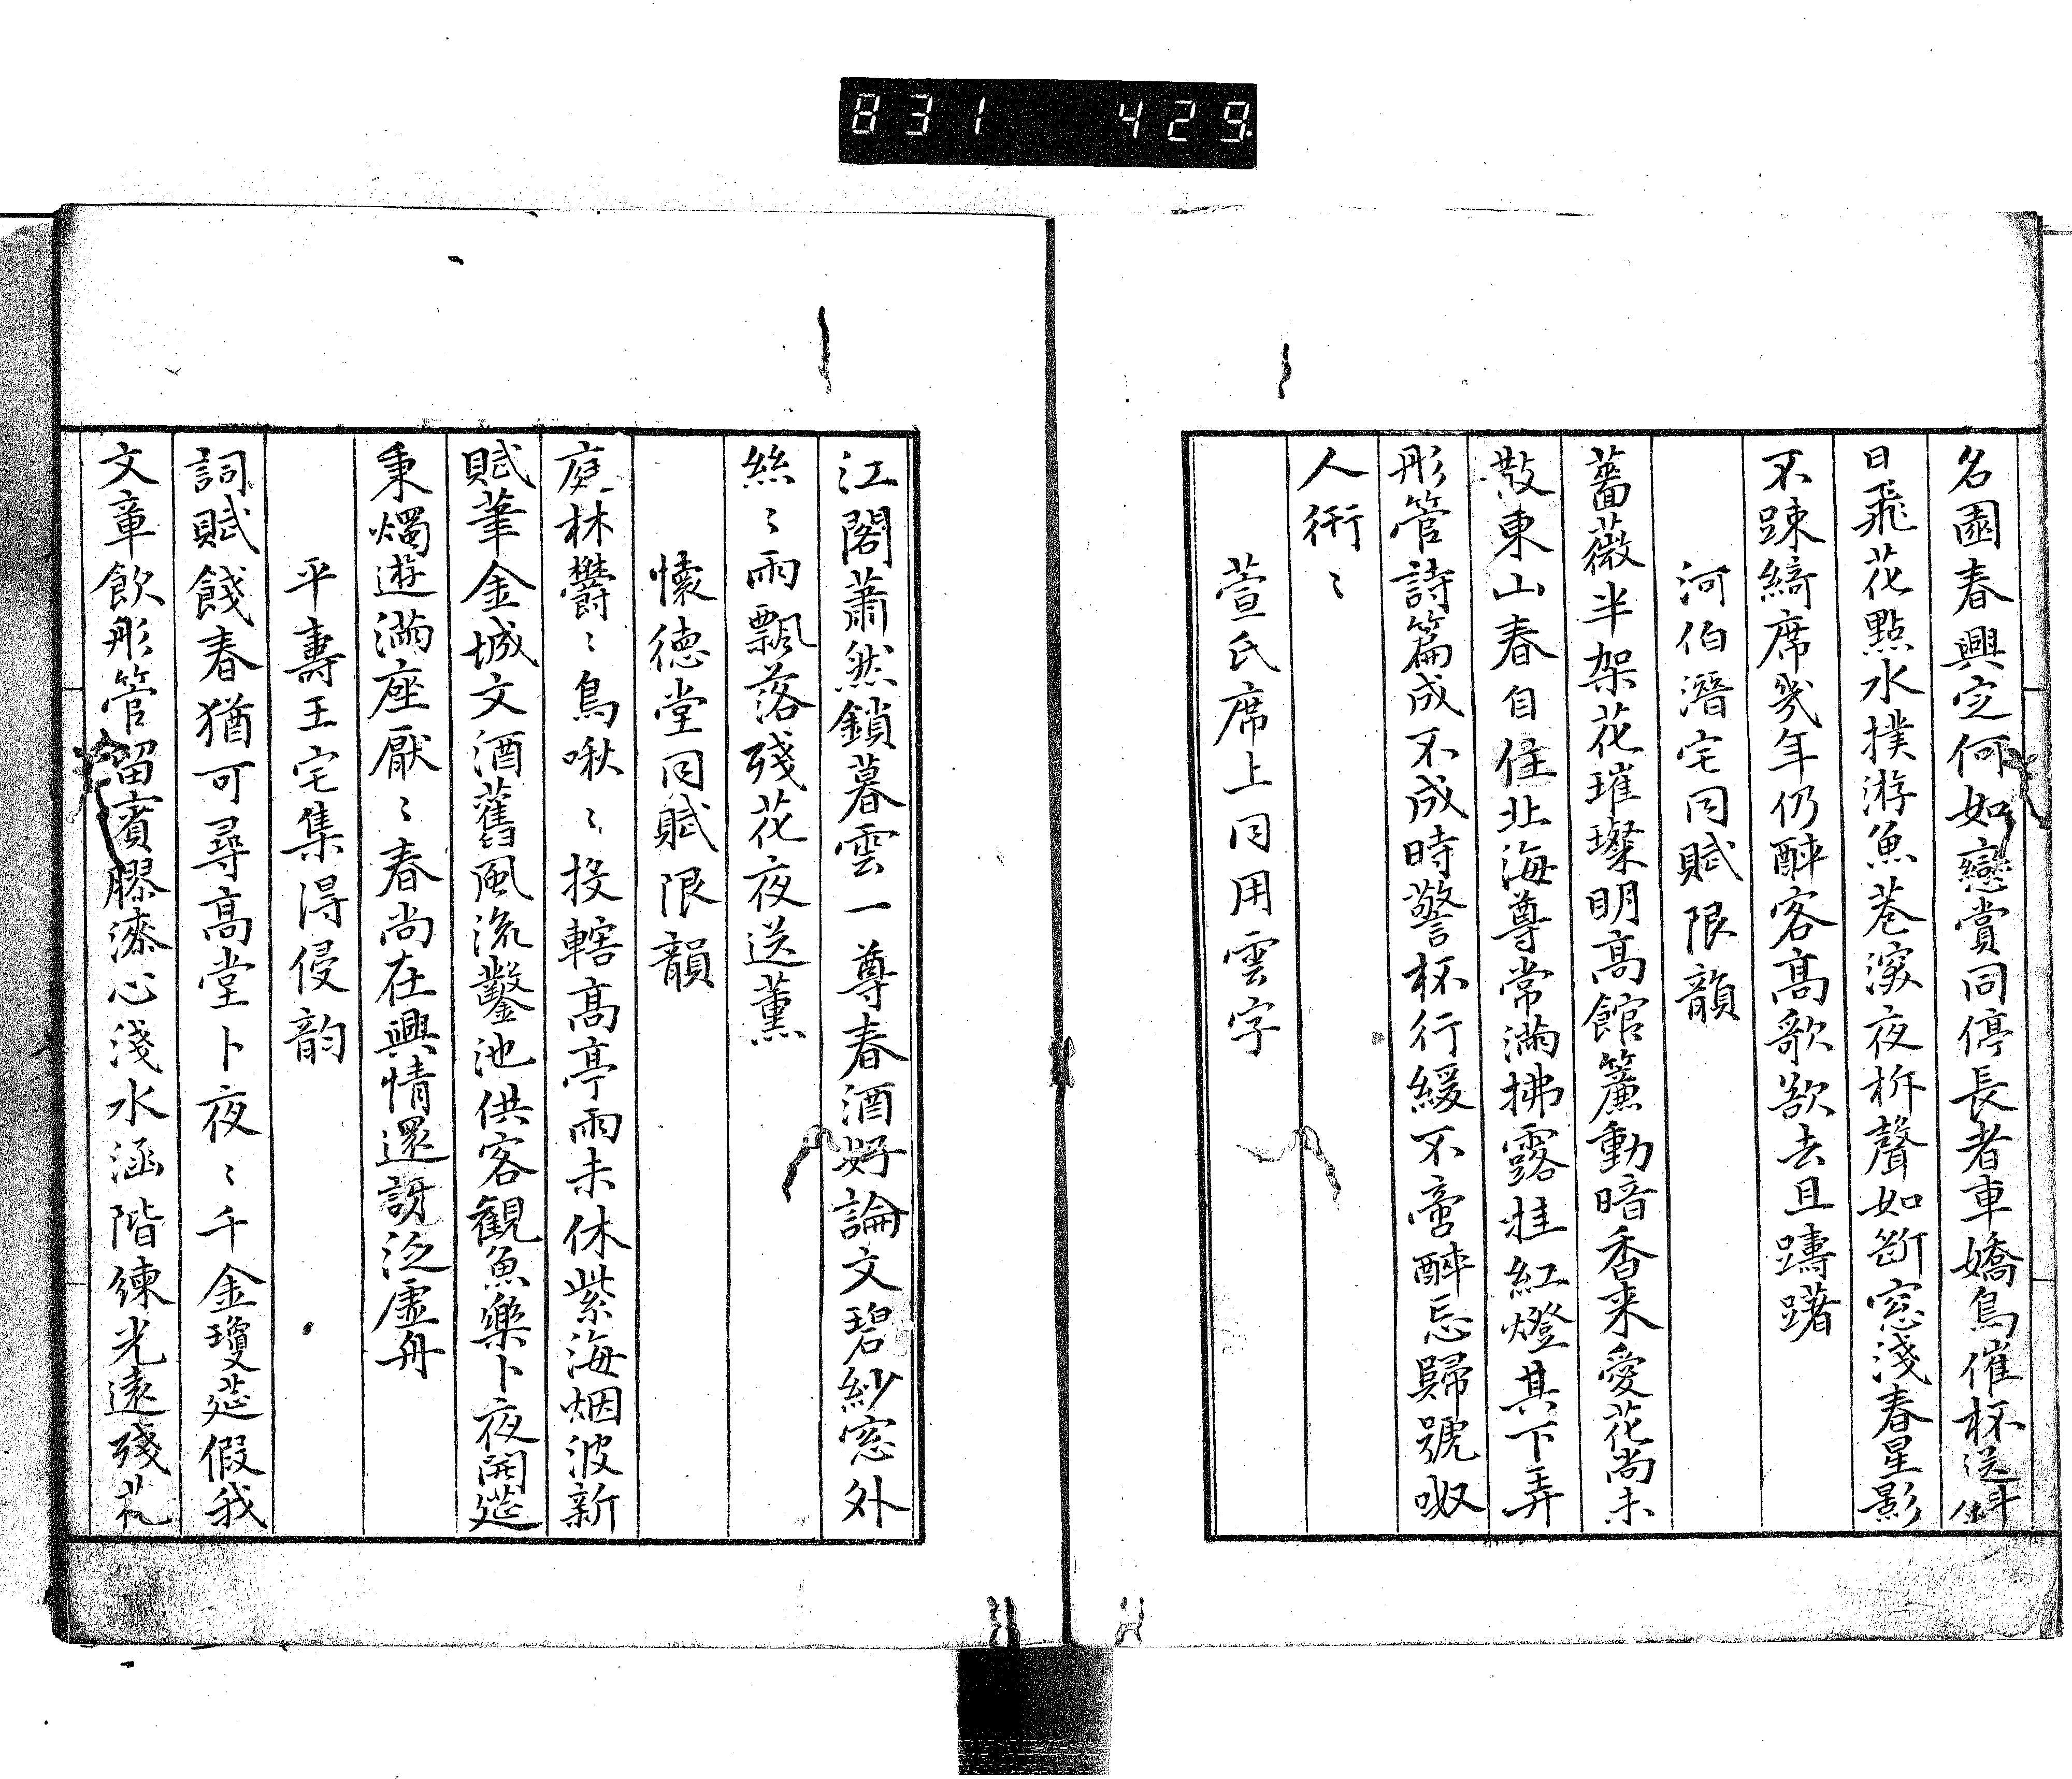 831 429
名園春興定何如戀賞同停長者車嬌鳥催杯送斜
日飛花點水撲游魚巷深夜柝聲如斷窓淺春星影
不踈綺席幾年仍醉客高歌欲去且躊躇
河伯潛宅同賦限韻
薔薇半架花璀璨明高館簾動暗香来愛花尚未
散東山春自佳北海尊常滿拂露挂紅燈其下弄
彤管詩篇成不成時警杯行緩不啻醉忘歸號呶
人衎〻
萱氏席上同用雲字
江閣蕭然鎖暮雲一尊春酒好論文碧紗窓外
絲〻雨飄落残花夜送薫
懐徳堂同賦限韻
庭林欝〻鳥啾〻投轄高亭雨未休紫海烟波新
賦筆金城文酒舊風流鑿池供客観魚樂卜夜開筵
秉燭遊満座厭〻春尚在興情還訝泛虚舟
平壽王宅集得侵韵
詞賦餞春猶可尋高堂卜夜〻千金瓊筵假我
文章飲彤管留賓膠漆心淺水涵階練光遠残花